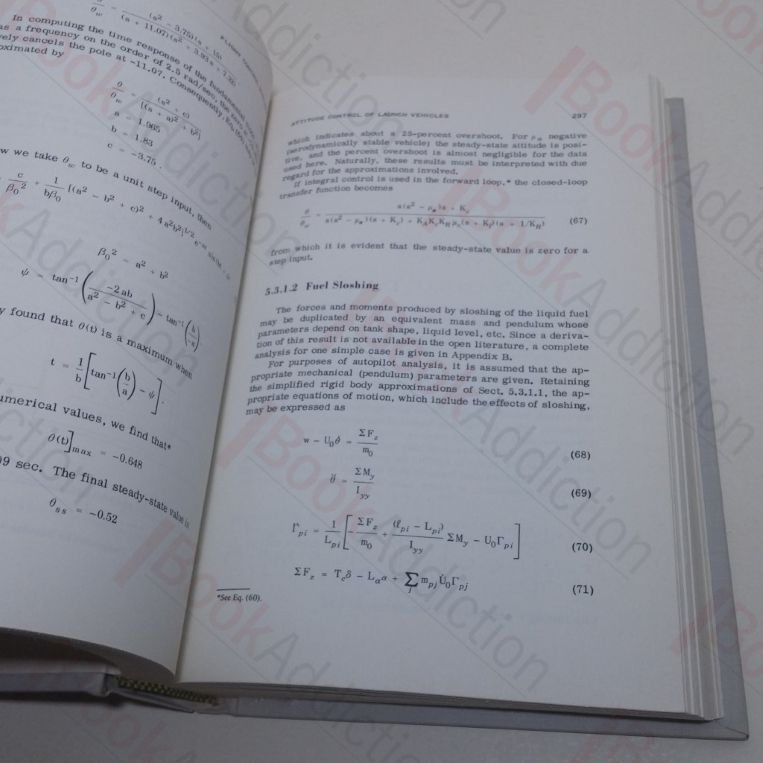 In computing the time response of the fundamental
as a frequency on the order of 2.5 rad/sec, the
vely cancels the pole at -11.07. Consequently, Eq.
oximated by
θ/θ_c = (s² + c)/[(s + a)² + b²]
a = 1.965
b = 1.83
c = -3.75.
w we take θ_c to be a unit step input, then
c/β₀² + 1/(bβ₀) [(a² - b² + c)² + 4a²b²]^(1/2) e^(-at)
β₀² = a² + b²
ψ = tan⁻¹(-2ab/(a² - b² + c)) - tan⁻¹(b/-a)
y found that θ(t) is a maximum when
t = 1/b [tan⁻¹(b/a) - ψ].
umerical values, we find that*
θ(t)]max = -0.648
9 sec. The final steady-state value is
θss = -0.52
ATTITUDE CONTROL OF LAUNCH VEHICLES 297
which indicates about a 25-percent overshoot. For μα negative
(aerodynamically stable vehicle) the steady-state attitude is posi-
tive, and the percent overshoot is almost negligible for the data
used here. Naturally, these results must be interpreted with due
regard for the approximations involved.
If integral control is used in the forward loop,* the closed-loop
transfer function becomes
(67)
from which it is evident that the steady-state value is zero for a
step input.
5.3.1.2 Fuel Sloshing
The forces and moments produced by sloshing of the liquid fuel
may be duplicated by an equivalent mass and pendulum whose
parameters depend on tank shape, liquid level, etc. Since a deriva-
tion of this result is not available in the open literature, a complete
analysis for one simple case is given in Appendix B.
For purposes of autopilot analysis, it is assumed that the ap-
propriate mechanical (pendulum) parameters are given. Retaining
the simplified rigid body approximations of Sect. 5.3.1.1, the ap-
propriate equations of motion, which include the effects of sloshing,
may be expressed as
ẇ - U₀θ̇ = ΣF_z/m₀ (68)
θ̈ = ΣM_y/I_yy (69)
Γ̈_pi = 1/L_pi [-ΣF_z/m₀ + (ℓ_pi - L_pi)/I_yy ΣM_y - U̇₀Γ_pi] (70)
ΣF_z = T_cδ - L_αα + Σ_j m_pj U̇₀Γ_pj (71)
*See Eq. (60).
BookAddiction